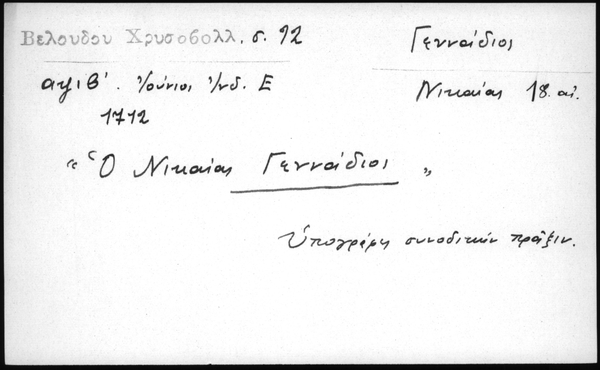 Βελουδου Χρυσοβολλ. σ. 92
Γεννάδιος
αψιβ΄. Ἰούνιος Ἰνδ. Ε
Νικαίας 18. αἰ.
1712
« Ὁ Νικαίας Γεννάδιος »
Ὑπογράφει συνοδικήν πρᾶξιν.